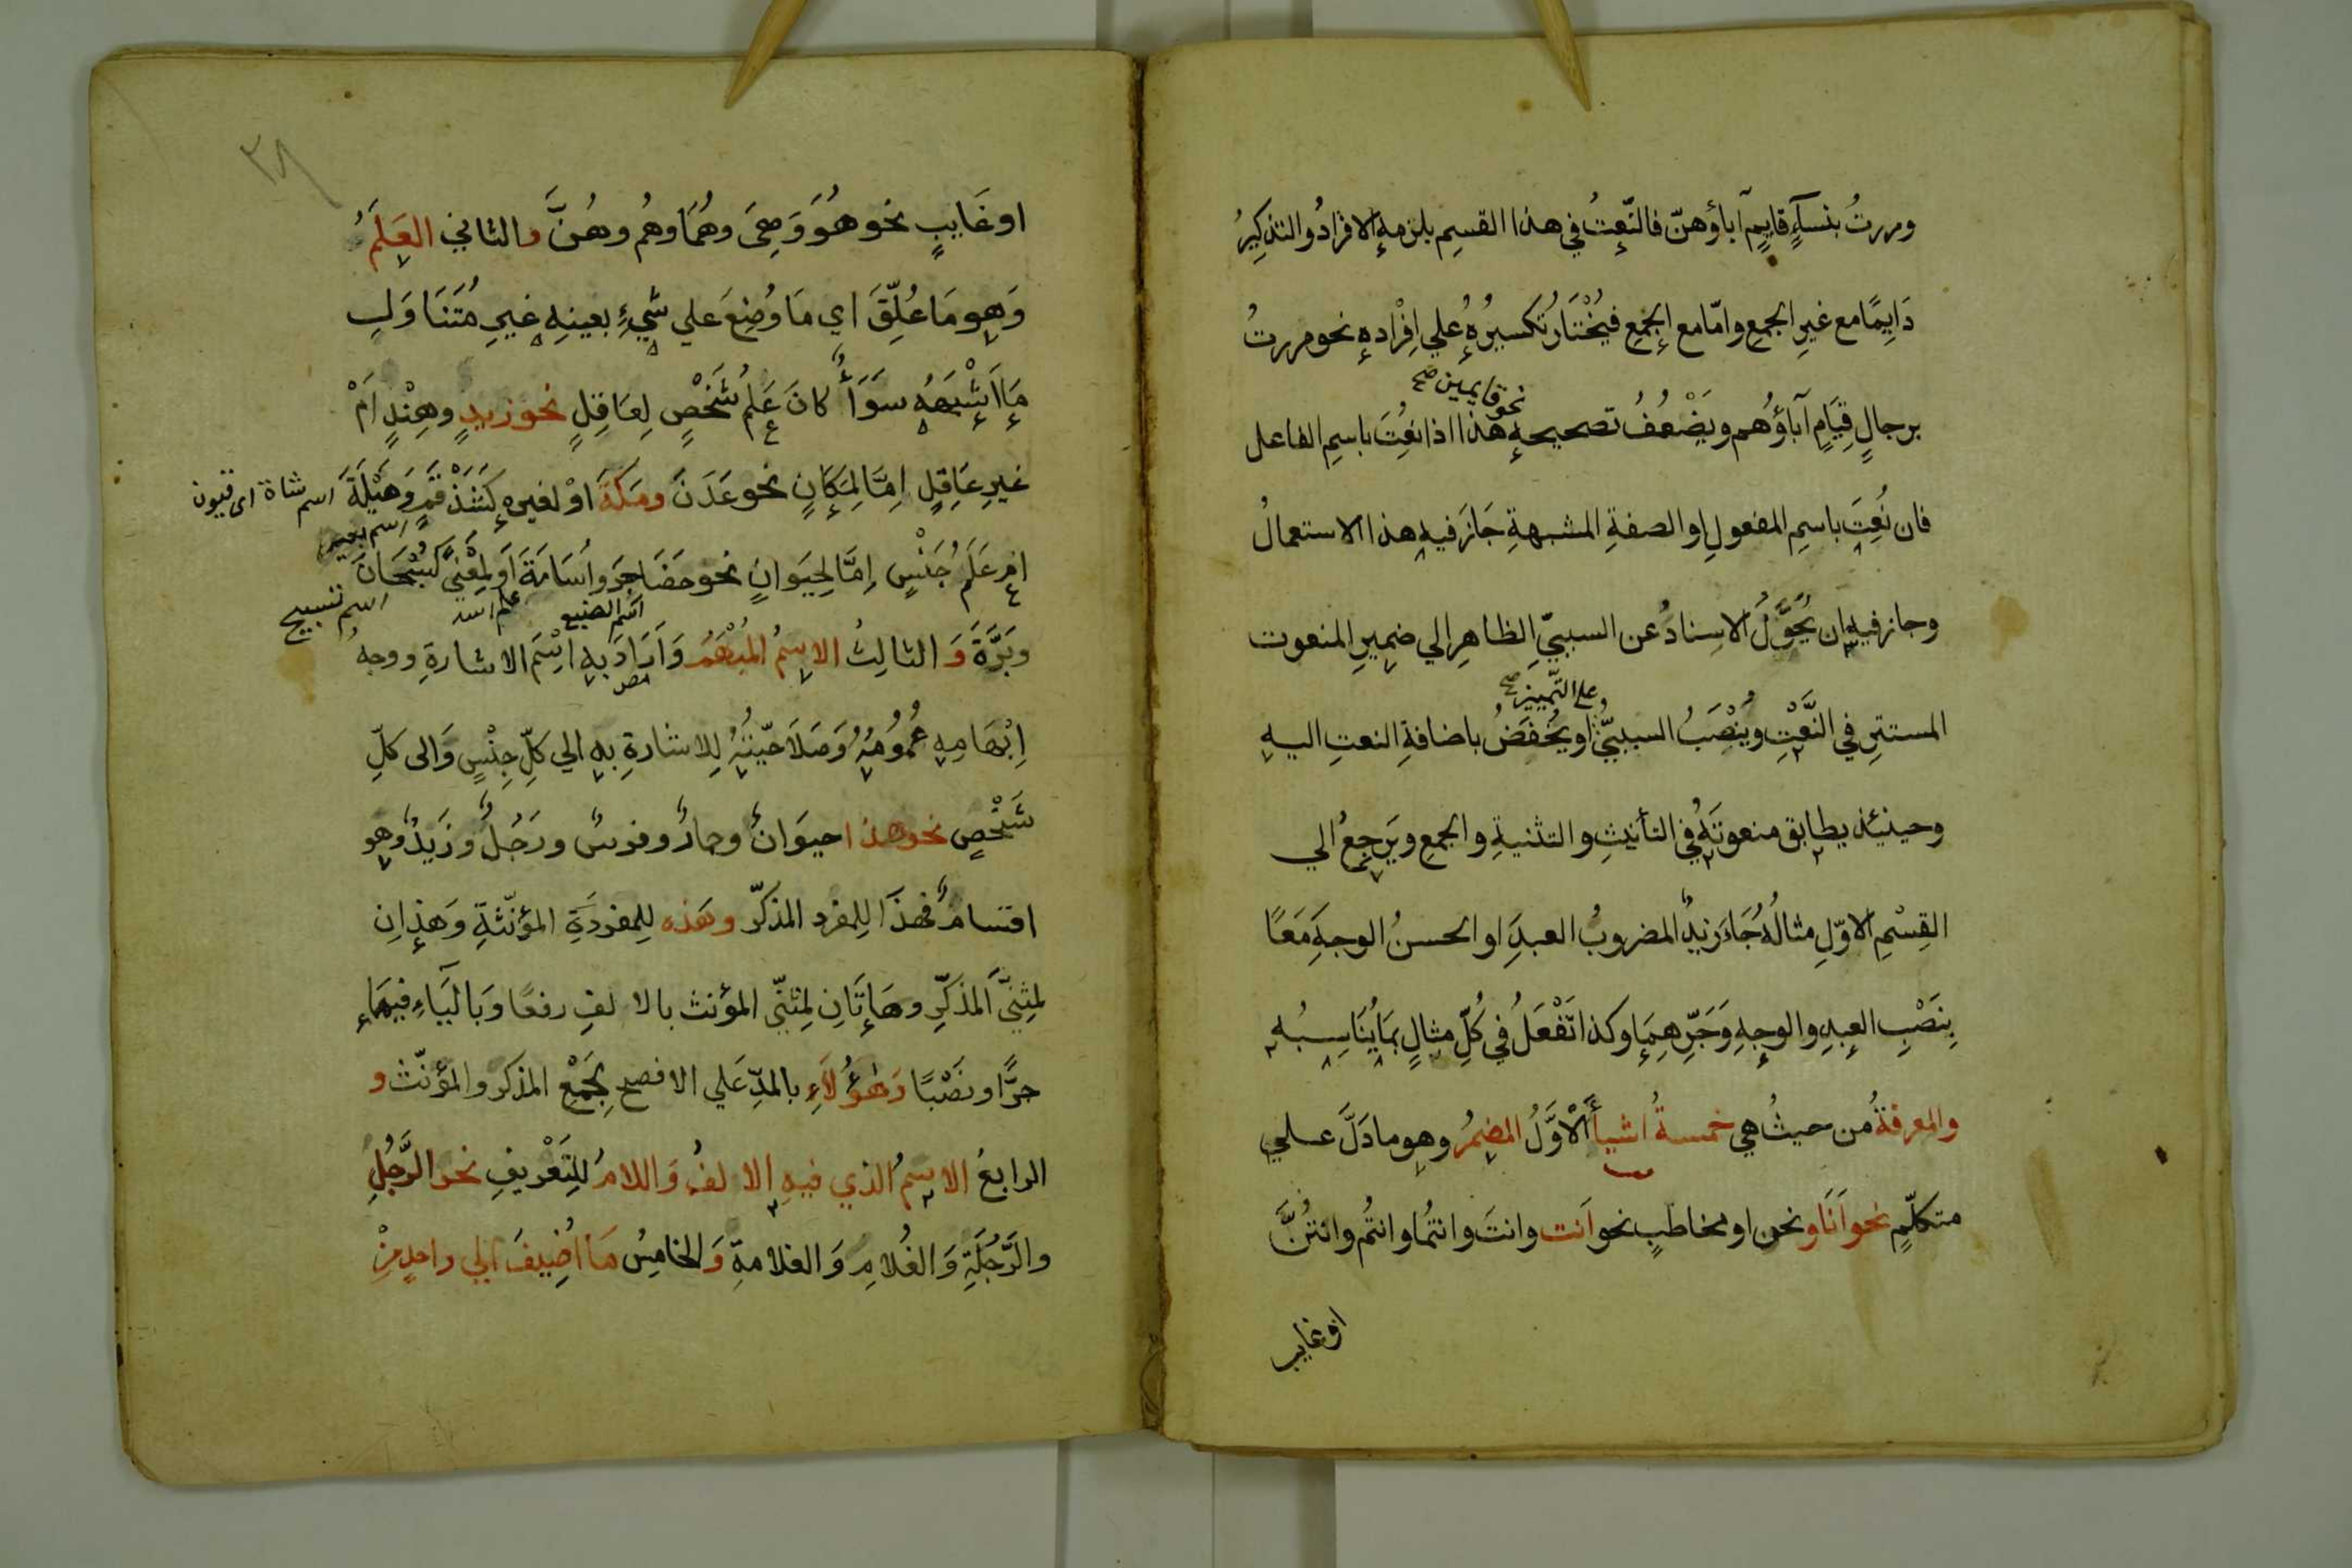 ومررتُ بنسآءٍ قايمٍ آباؤهنّ فالنّعتُ في هذا القسيم يلزمه الافرادُ والتذكيرُ
دَايِمًا مع غيرِ الجمعِ وامّا مع الجَمْعِ فيُخْتَارُ تكسيرُهُ علي اِفْرادهِ نحو مررتُ
برجالٍ قِيَامٍ آباؤُهم ويَضْعُفُ تصحيحه نحو قايمين صح هذا اذا نُعِتَ باسمِ الفاعل
فان نُعِتَ باسمِ المفعولِ او الصفةِ المشبهةِ جَازَ فيهِ هذا الاستعمالُ
وجاز فيهِ ان يُحَوَّلُ الاسِنادُ عن السببيّ الظاهرِ الي ضميرِ المنعوت
المستترِ في النَّعْتِ ويُنْصَبُ السببيُّ علي التّمييز صح او يُخْفَضُ باضافةِ النعتِ اليهِ
وحينئذ يطابق منعوتَهُ في التأنيثِ والتثنيةِ والجمعِ ويَرجِعُ الي
القِسْمِ الاوّلِ مثالُهُ جَاءَ زيدٌ المضروبُ العبدَِ او الحسنُ الوجهَِ مَعًا
بِنَصْبِ العبدِ والوجهِ وَجَرِّهِمَا وكذا تَفْعَلُ في كُلِّ مثالٍ بمَا يُنَاسِبُه
والمعرفةُ من حيثُ هي خمسةُ اشيأَ اَلْاَوَّلُ المضمرُ وهو ما دَلَّ علي
متكلّمٍ نحو اَنَا ونحن او مخاطَبٍ نحو اَنت وانتَ وانتُما وانتُم وانتُنَّ
او غايب
٣٨
او غَايبٍ نحو هُوَ وَهِيَ وهُمَا وهُم وهُنَّ والثاني العَلَمُ
وَهو مَا عُلِّقَ اي مَا وُضِعَ علي شيءٍ بعينهِ غيرِ مُتَنَاوَلٍ
مَا اَشْبَهَهُ سَوَأٌ كانَ عَلمُ شَخْصٍ لِعَاقِلٍ نحو زيدٍ وهِنْدٍ اَمْ
غيرِ عَاقلٍ اِمَّا لِمَكَانٍ نحو عَدَنَ ومَكَةَ اوْ لغيرهِ كشَذْقَمٍ وَهَيْلَةَ اسم شاة
اسم بعير
ام عَلَمُ جَنْسٍ اِمَّا لِحيَوانٍ نحو حَضَاجِرَ واُسَامَةَ اَو لِمَعْنيً كَسُبْحَانَ
اسم الضبع علم اسد اسم تسبيح
وبَرَّةَ وَ الثالِثُ الاسمُ المُبْهَمُ وَاَرَادَ بهِ اسْمَ الاشارةِ ووجهُ
اِبْهَامِهِ عُمُومُهُ وَصَلَاحيّتُهُ لِلاشارةِ بهِ الي كلِّ جِنْسٍ وَالى كلِّ
شَخْصٍ نحو هذا حيوَانٌ وحمارٌ وفرسٌ ورَجُلٌ وزَيدٌ وهو
اقسامٌ فهذَا لِلمفرد المذكّر وهَذه لِلمفردَةِ المؤنّثةِ وَهَذانِ
لمثنّي المذكّرِ وهَاتَانِ لمثنّي المؤنث بالالفِ رفعًا وَبالْيَاءِ فيهمَا
جرًّا ونَصْبًا وَهٰؤُلَاءِ بالمدِّ عَلي الافصح لِجَمْعِ المذكر والمؤنّث و
الرابعُ الاسمُ الذي فيهِ الالفُ وَاللامُ لِلتَعْريفِ نحو الرَّجُلِ
والرَّجُلَةِ وَالغُلامِ وَالغلامةِ وَالخامِسُ مَا اُضِيفَ اِلي واحدٍ مِنْ